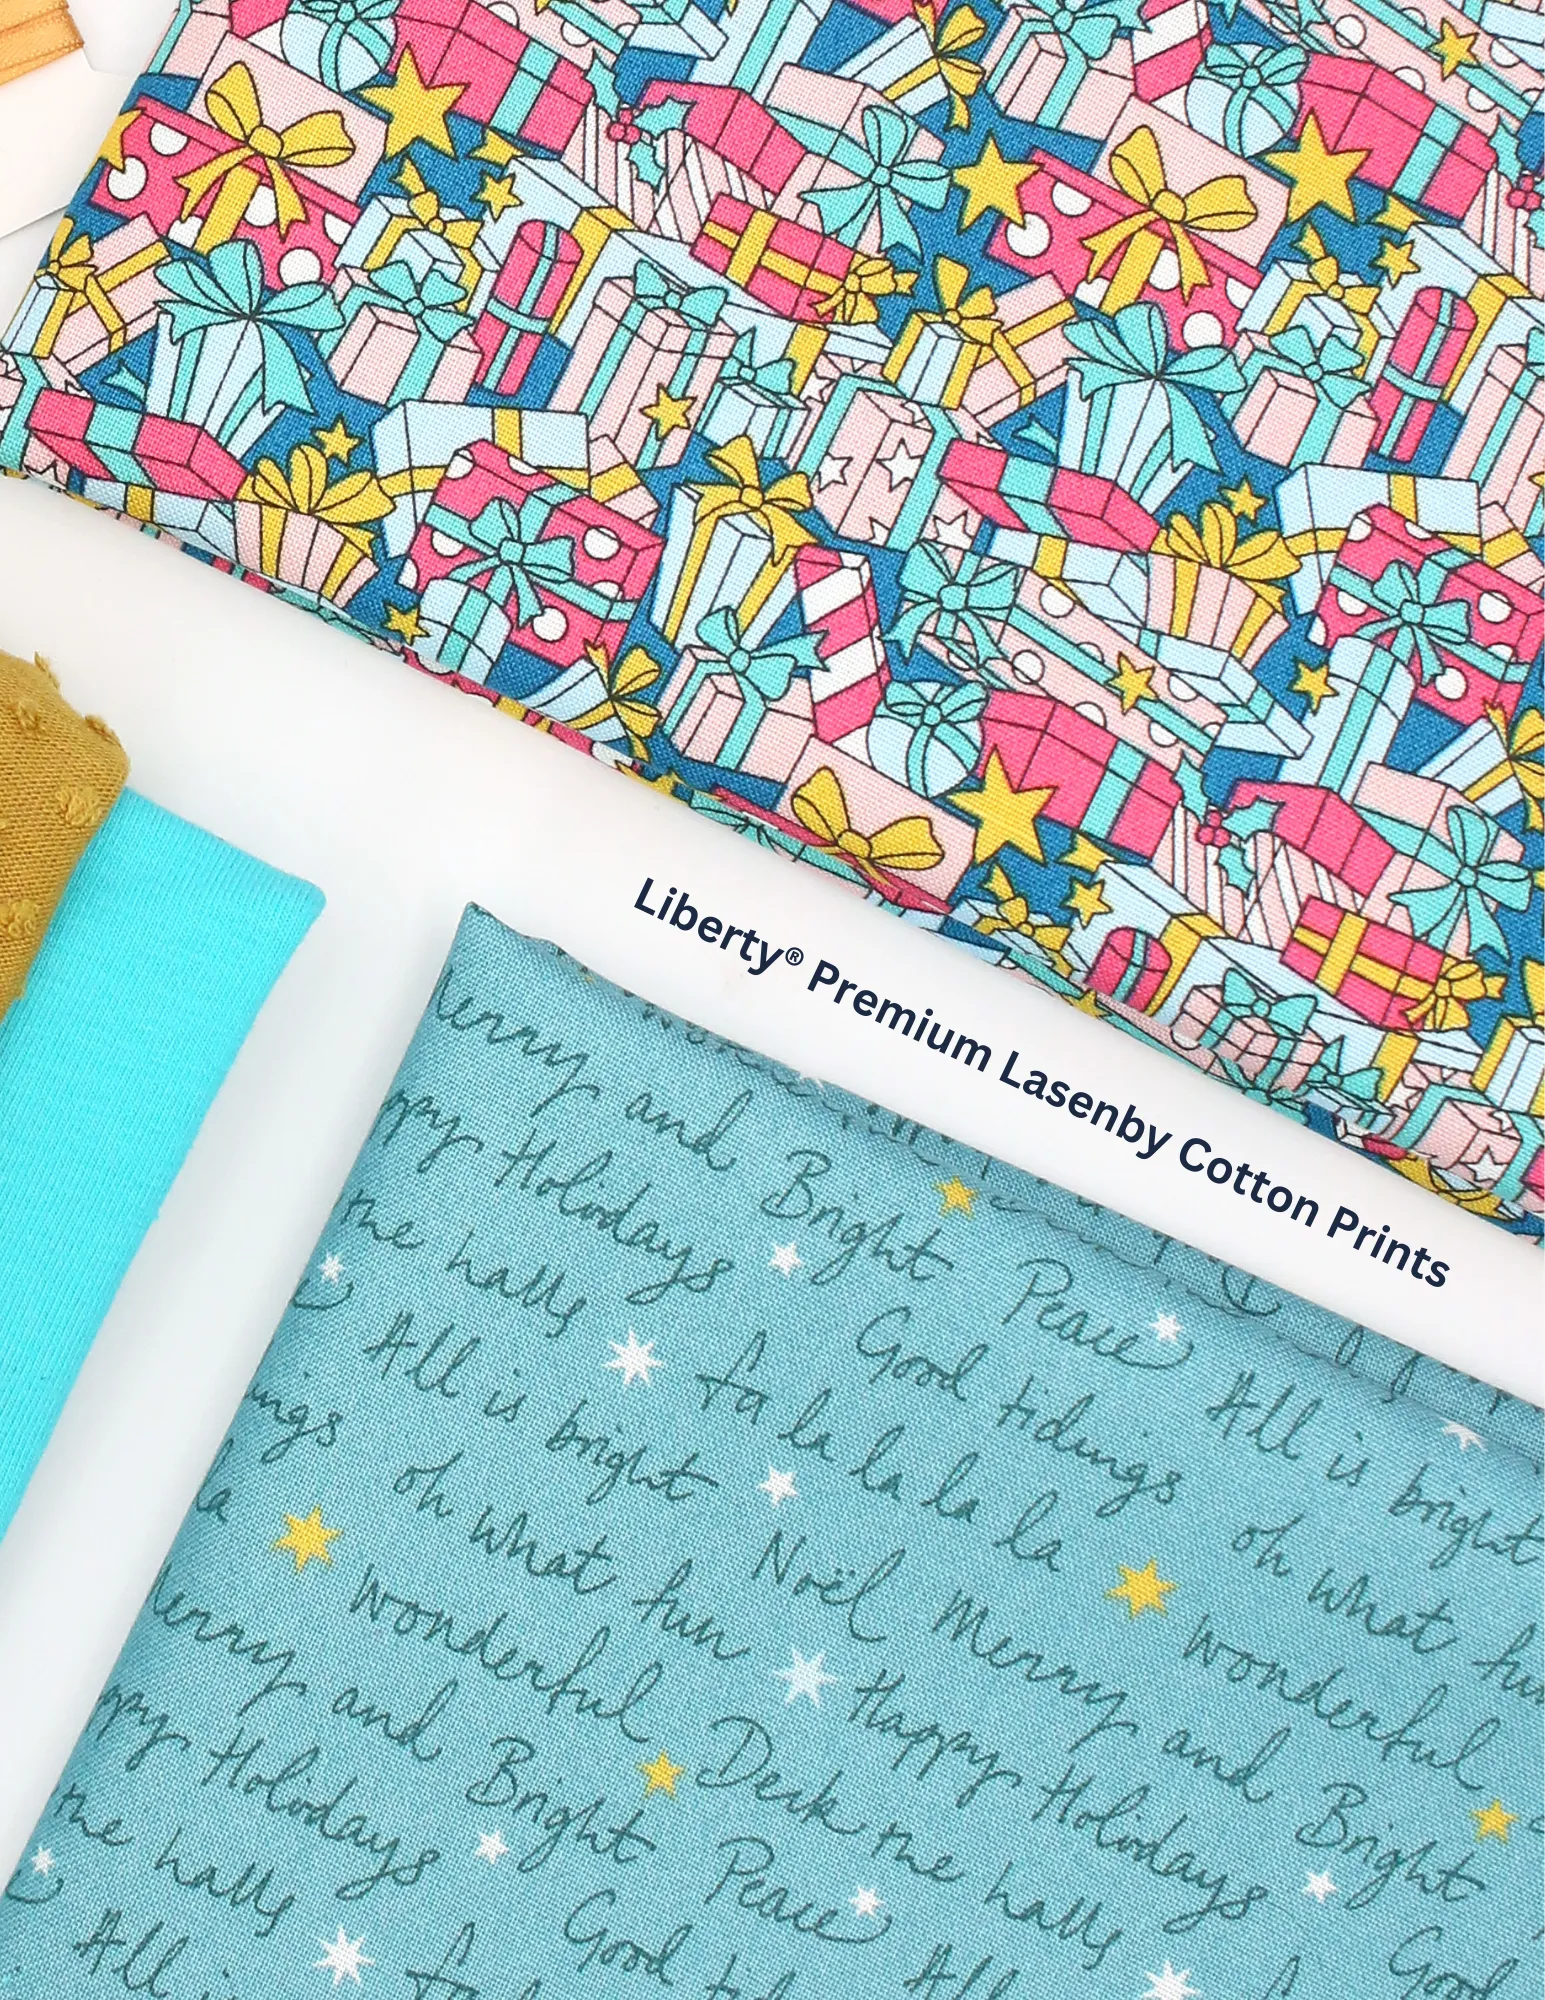 Liberty® Premium Lasenby Cotton Prints
Merry and Bright Peace All is bright
Happy Holidays Good tidings oh what fun
the halls fa la la la la wonderful
All is bright Noël Merry and Bright
tidings oh what fun Happy Holidays Good
la wonderful Deck the halls
Merry and Bright Peace All
Happy Holidays Good
the halls fa
All is